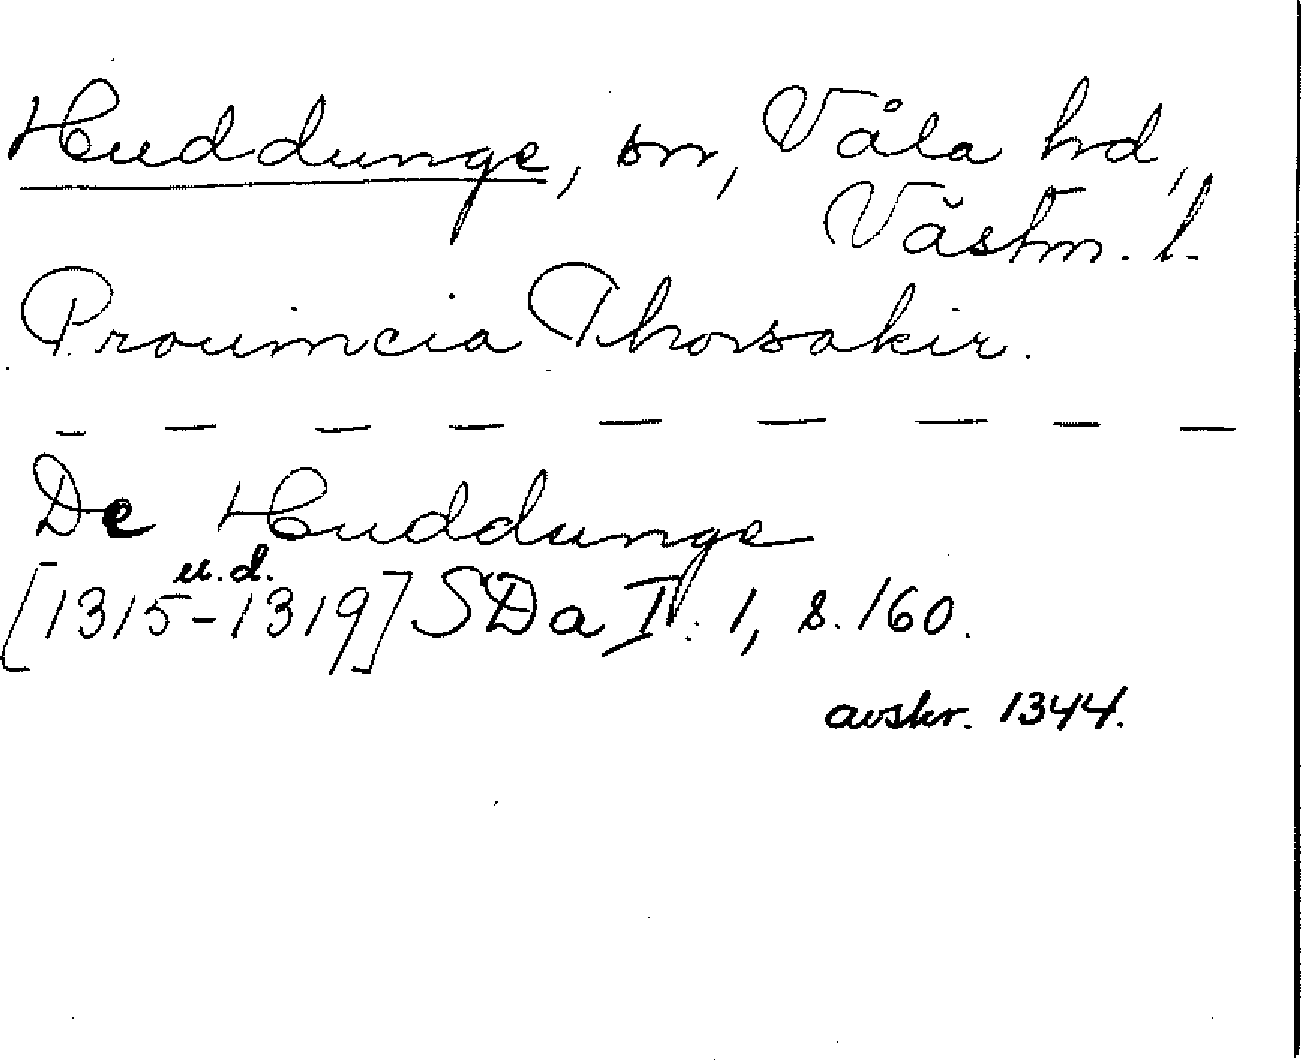 Huddunge, sn, Våla hd,
Västm. l.
Prouincia Thorsakir.
— — — — — — — — —
De Huddunge
u.d.
[1315-1319] SDa I: 1, s. 160.
avskr. 1344.